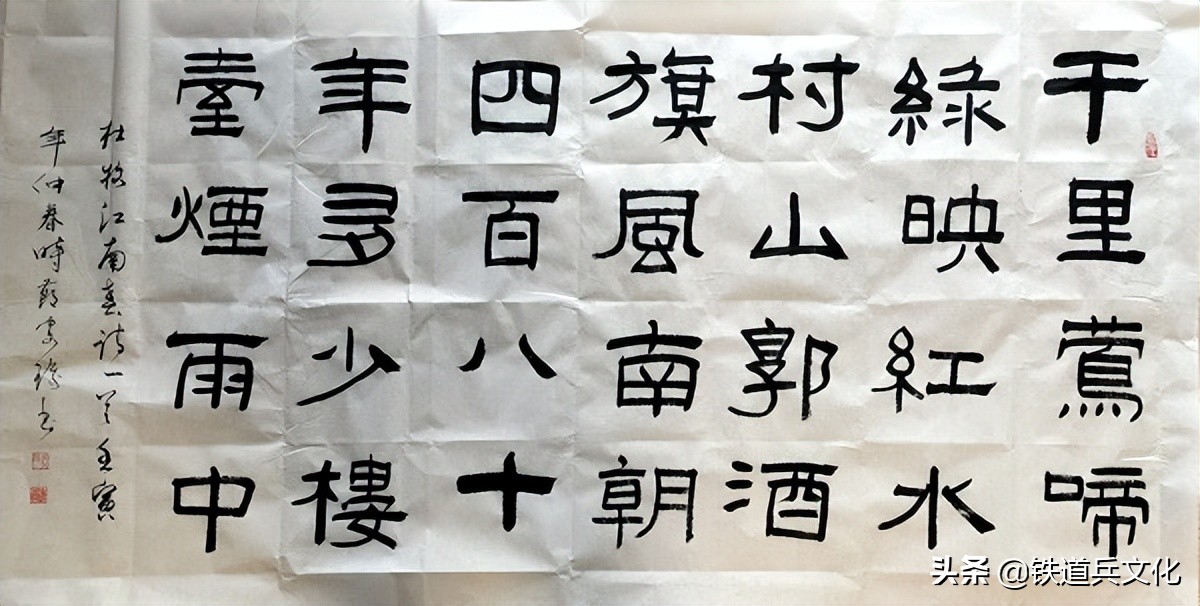 千里鶯啼
綠映紅水
村山郭酒
旗風南朝
四百八十
年多少樓
臺煙雨中
杜牧江南春诗一首壬寅
年仲春時
头条 @铁道兵文化